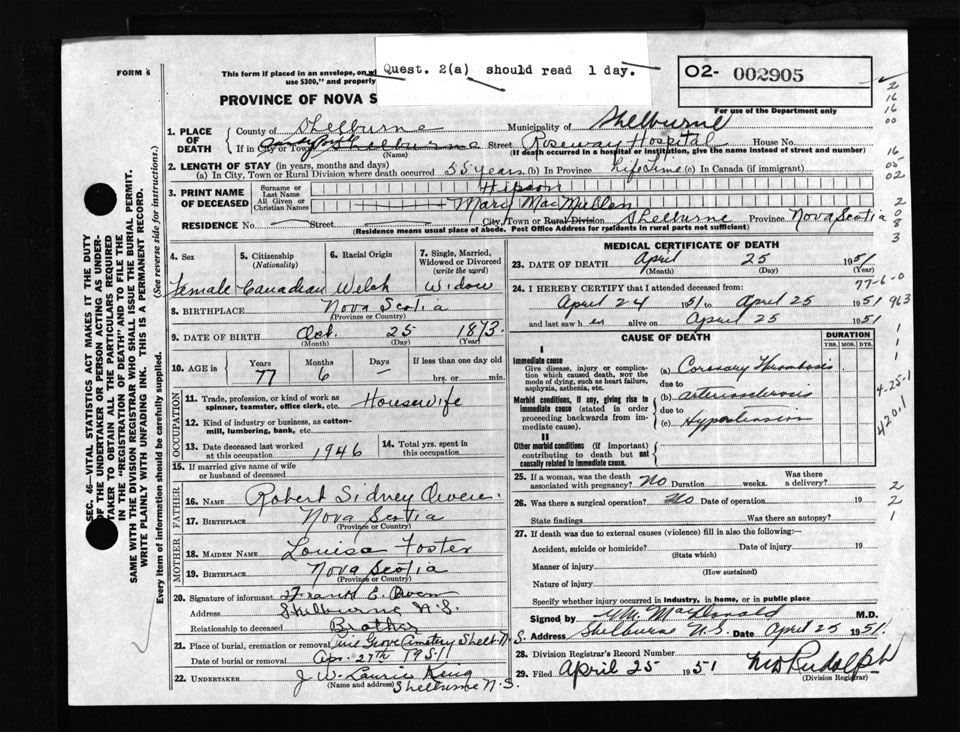 FORM 6
This form if placed in an envelope, on wh
use $300," and property
Quest. 2(a) should read 1 day.
02- 002905
For use of the Department only
PROVINCE OF NOVA S
1. PLACE OF DEATH
County of Shelburne Municipality of Shelburne
If in City or Town Shelburne Street Roseway Hospital House No.
(Name) (If death occurred in a hospital or institution, give the name instead of street and number)
2. LENGTH OF STAY (in years, months and days)
(a) In City, Town or Rural Division where death occurred 55 years (b) In Province Life Time (c) In Canada (if immigrant)
3. PRINT NAME OF DECEASED
Surname or Last Name Hipson
All Given or Christian Names Mary MacMullen
RESIDENCE No. — Street — City, Town or Rural Division Shelburne Province Nova Scotia
(Residence means usual place of abode. Post Office Address for residents in rural parts not sufficient)
4. Sex Female
5. Citizenship (Nationality) Canadian
6. Racial Origin Welsh
7. Single, Married, Widowed or Divorced (write the word) Widow
8. BIRTHPLACE Nova Scotia
(Province or Country)
9. DATE OF BIRTH Oct. 25 1873
(Month) (Day) (Year)
10. AGE in Years 77 Months 6 Days – If less than one day old
hrs. or min.
OCCUPATION
11. Trade, profession, or kind of work as spinner, teamster, office clerk, etc. Housewife
12. Kind of industry or business, as cotton-mill, lumbering, bank, etc.
13. Date deceased last worked at this occupation 1946
14. Total yrs. spent in this occupation
15. If married give name of wife or husband of deceased
FATHER
16. Name Robert Sidney Owen
17. Birthplace Nova Scotia
(Province or Country)
MOTHER
18. Maiden Name Louisa Foster
19. Birthplace Nova Scotia
(Province or Country)
20. Signature of informant Frank E. Owen
Address Shelburne N.S.
Relationship to deceased Brother
21. Place of burial, cremation or removal Pine Grove Cemetery Shelb. N.S.
Date of burial or removal Apr. 27th 1951
22. UNDERTAKER J. W. Laurie King
(Name and address) Shelburne N.S.
MEDICAL CERTIFICATE OF DEATH
23. DATE OF DEATH April 25 1951
(Month) (Day) (Year)
24. I HEREBY CERTIFY that I attended deceased from:
April 24 1951 to April 25 1951
and last saw her alive on April 25 1951
CAUSE OF DEATH
DURATION
YRS. MOS. DYS.
I
Immediate cause
Give disease, injury or complication which caused death, not the mode of dying, such as heart failure, asphyxia, asthenia, etc.
(a) Coronary Thrombosis
due to
Morbid conditions, if any, giving rise to immediate cause (stated in order proceeding backwards from immediate cause).
(b) arteriosclerosis
due to
(c) Hypertension
II
Other morbid conditions (if important) contributing to death but not causally related to immediate cause.
25. If a woman, was the death associated with pregnancy? No Duration weeks. Was there a delivery?
26. Was there a surgical operation? No Date of operation 19
State findings Was there an autopsy?
27. If death was due to external causes (violence) fill in also the following:—
Accident, suicide or homicide? Date of injury 19
(State which)
Manner of injury
(How sustained)
Nature of injury
Specify whether injury occurred in industry, in home, or in public place
Signed by MacDonald M.D.
Address Shelburne N.S. Date April 25 1951
28. Division Registrar's Record Number
29. Filed April 25 1951 Rudolph
(Division Registrar)
77-6-0
963
4-25-1
420.1
2
16
16
00
16
05
02
2
0
8
3
1
1
1
2
2
1
SEC. 46—VITAL STATISTICS ACT MAKES IT THE DUTY
OF THE UNDERTAKER OR PERSON ACTING AS UNDERTAKER TO OBTAIN ALL THE PARTICULARS REQUIRED
IN THE "REGISTRATION OF DEATH" AND TO FILE THE
SAME WITH THE DIVISION REGISTRAR WHO SHALL ISSUE THE BURIAL PERMIT.
WRITE PLAINLY WITH UNFADING INK. THIS IS A PERMANENT RECORD.
Every item of information should be carefully supplied. (See reverse side for instructions.)